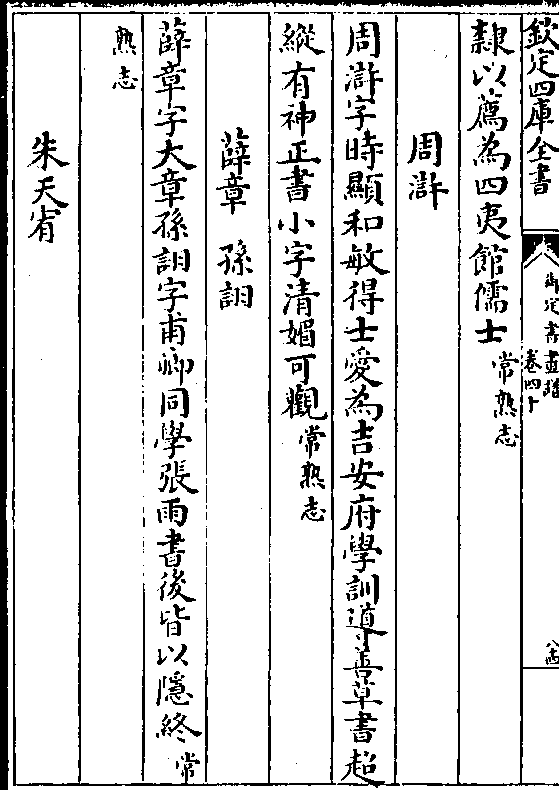 欽定四庫全書
御定書畫譜
卷四十
隸以薦為四夷館儒士常熟志
周滸
周滸字時顯和敏得士愛為吉安府學訓導善草書超
縱有神正書小字清媚可觀常熟志
薛章 孫詡
薛章字大章孫詡字甫卿同學張雨書後皆以隱終常
熟志
朱天宥